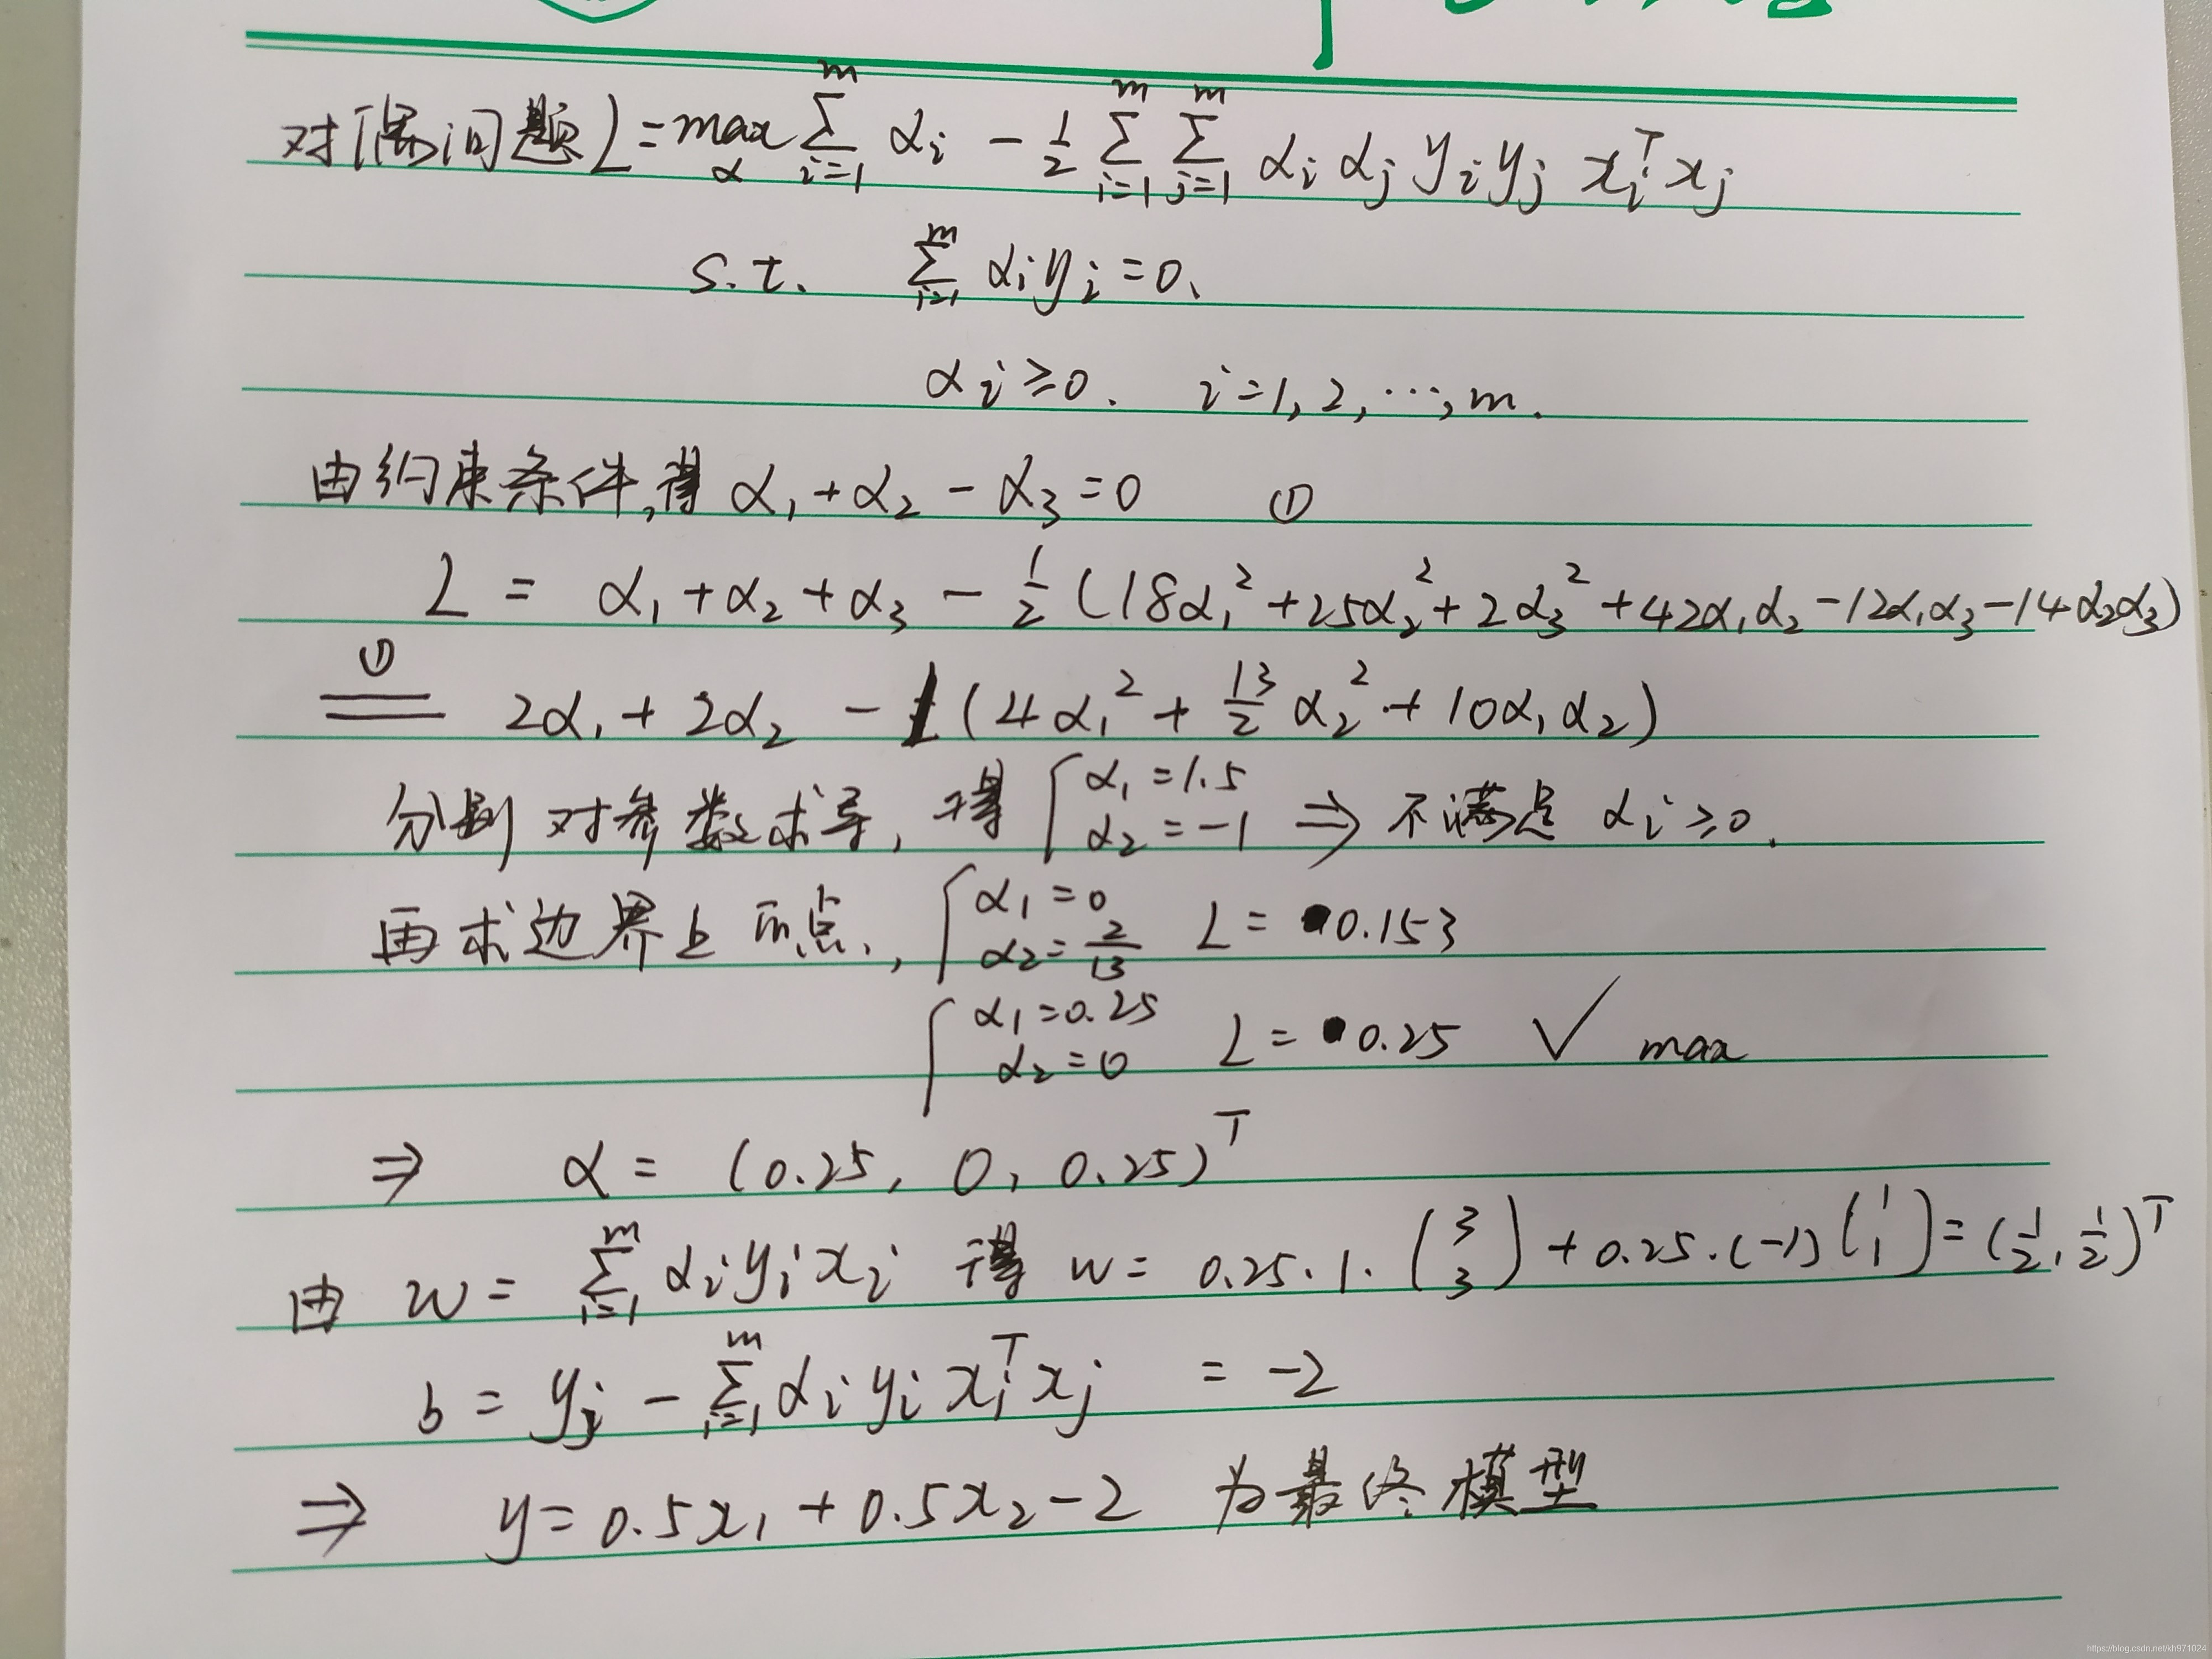 对偶问题 L = max_α ∑_{i=1}^{m} α_i - 1/2 ∑_{i=1}^{m} ∑_{j=1}^{m} α_i α_j y_i y_j x_i^T x_j
s.t. ∑_{i=1}^{m} α_i y_i = 0、
α_i ≥ 0. i = 1, 2, ···, m.
由约束条件,得 α₁ + α₂ - α₃ = 0 ①
L = α₁ + α₂ + α₃ - 1/2 (18α₁² + 25α₂² + 2α₃² + 42α₁α₂ - 12α₁α₃ - 14α₂α₃)
① == 2α₁ + 2α₂ - 1 (4α₁² + 13/2 α₂² + 10α₁α₂)
分别对参数求导, 得 { α₁ = 1.5 α₂ = -1 ⇒ 不满足 α_i ≥ 0.
再求边界上两点, { α₁ = 0 α₂ = 2/13 L = 0.153
{ α₁ = 0.25 α₂ = 0 L = 0.25 ✓ max
⇒ α = (0.25, 0, 0.25)^T
由 w = ∑_{i=1}^{m} α_i y_i x_i 得 w = 0.25·1·(3 3) + 0.25·(-1)(1 1) = (1/2, 1/2)^T
b = y_j - ∑_{i=1}^{m} α_i y_i x_i^T x_j = -2
⇒ y = 0.5x₁ + 0.5x₂ - 2 为最终模型
https://blog.csdn.net/kh971024